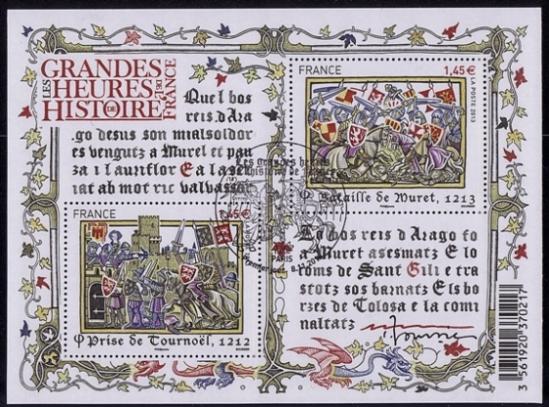 LES GRANDES HEURES DE L'HISTOIRE DE FRANCE
Quel bos
reis d'Arago
go desus son mialsoldor
es vengutz a Muret et pau
za i l'auriflor E a laseti
at ab mot ric valvassor
FRANCE
1,45€
LA POSTE 2013
Bataille de Muret, 1213
FRANCE
1,45€
Prise de Tournoël, 1212
Les Grandes heures
de l'histoire de France
PARIS
Lo bos reis d'Arago fo
a Muret asesmatz E lo
coms de Sant Gili e tra
stotz sos barnatz Els bo
rzes de Tolosa e la comi
naltatz
3 561920 370217